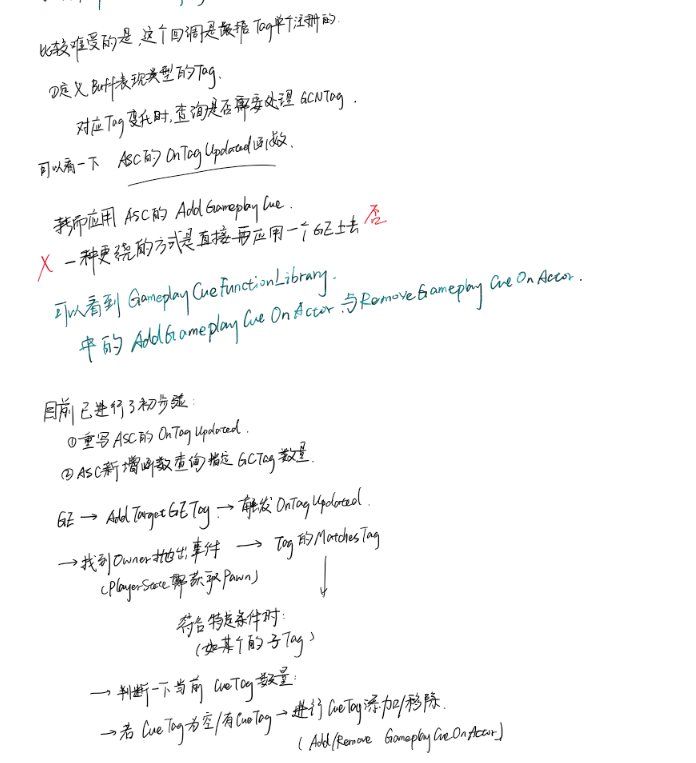 比较难受的是,这个回调是根据Tag单个注册的.
①定义Buff表现类型的Tag.
对应Tag变化时,查询是否需要处理GCNTag.
可以看一下 ASC的OnTagUpdated函数.
转而应用ASC的AddGameplayCue.
X 一种更绕的方式是直接再应用一个GE上去 否
可以看到GameplayCueFunctionLibrary.
中的AddGameplayCueOnActor.与RemoveGameplayCueOnActor.
目前已进行了初步骤:
①重写ASC的OnTagUpdated.
②ASC新增函数查询指定GCTag数量.
GE → AddTargetGETag → 触发OnTagUpdated.
→ 找到Owner抛出事件 → Tag的MatchesTag
(PlayerState即获取Pawn)
符合特定条件时:
(如某个的子Tag)
→ 判断一下当前CueTag数量:
→ 若CueTag为空/有CueTag → 进行CueTag添加/移除.
(Add/Remove GameplayCueOnActor)